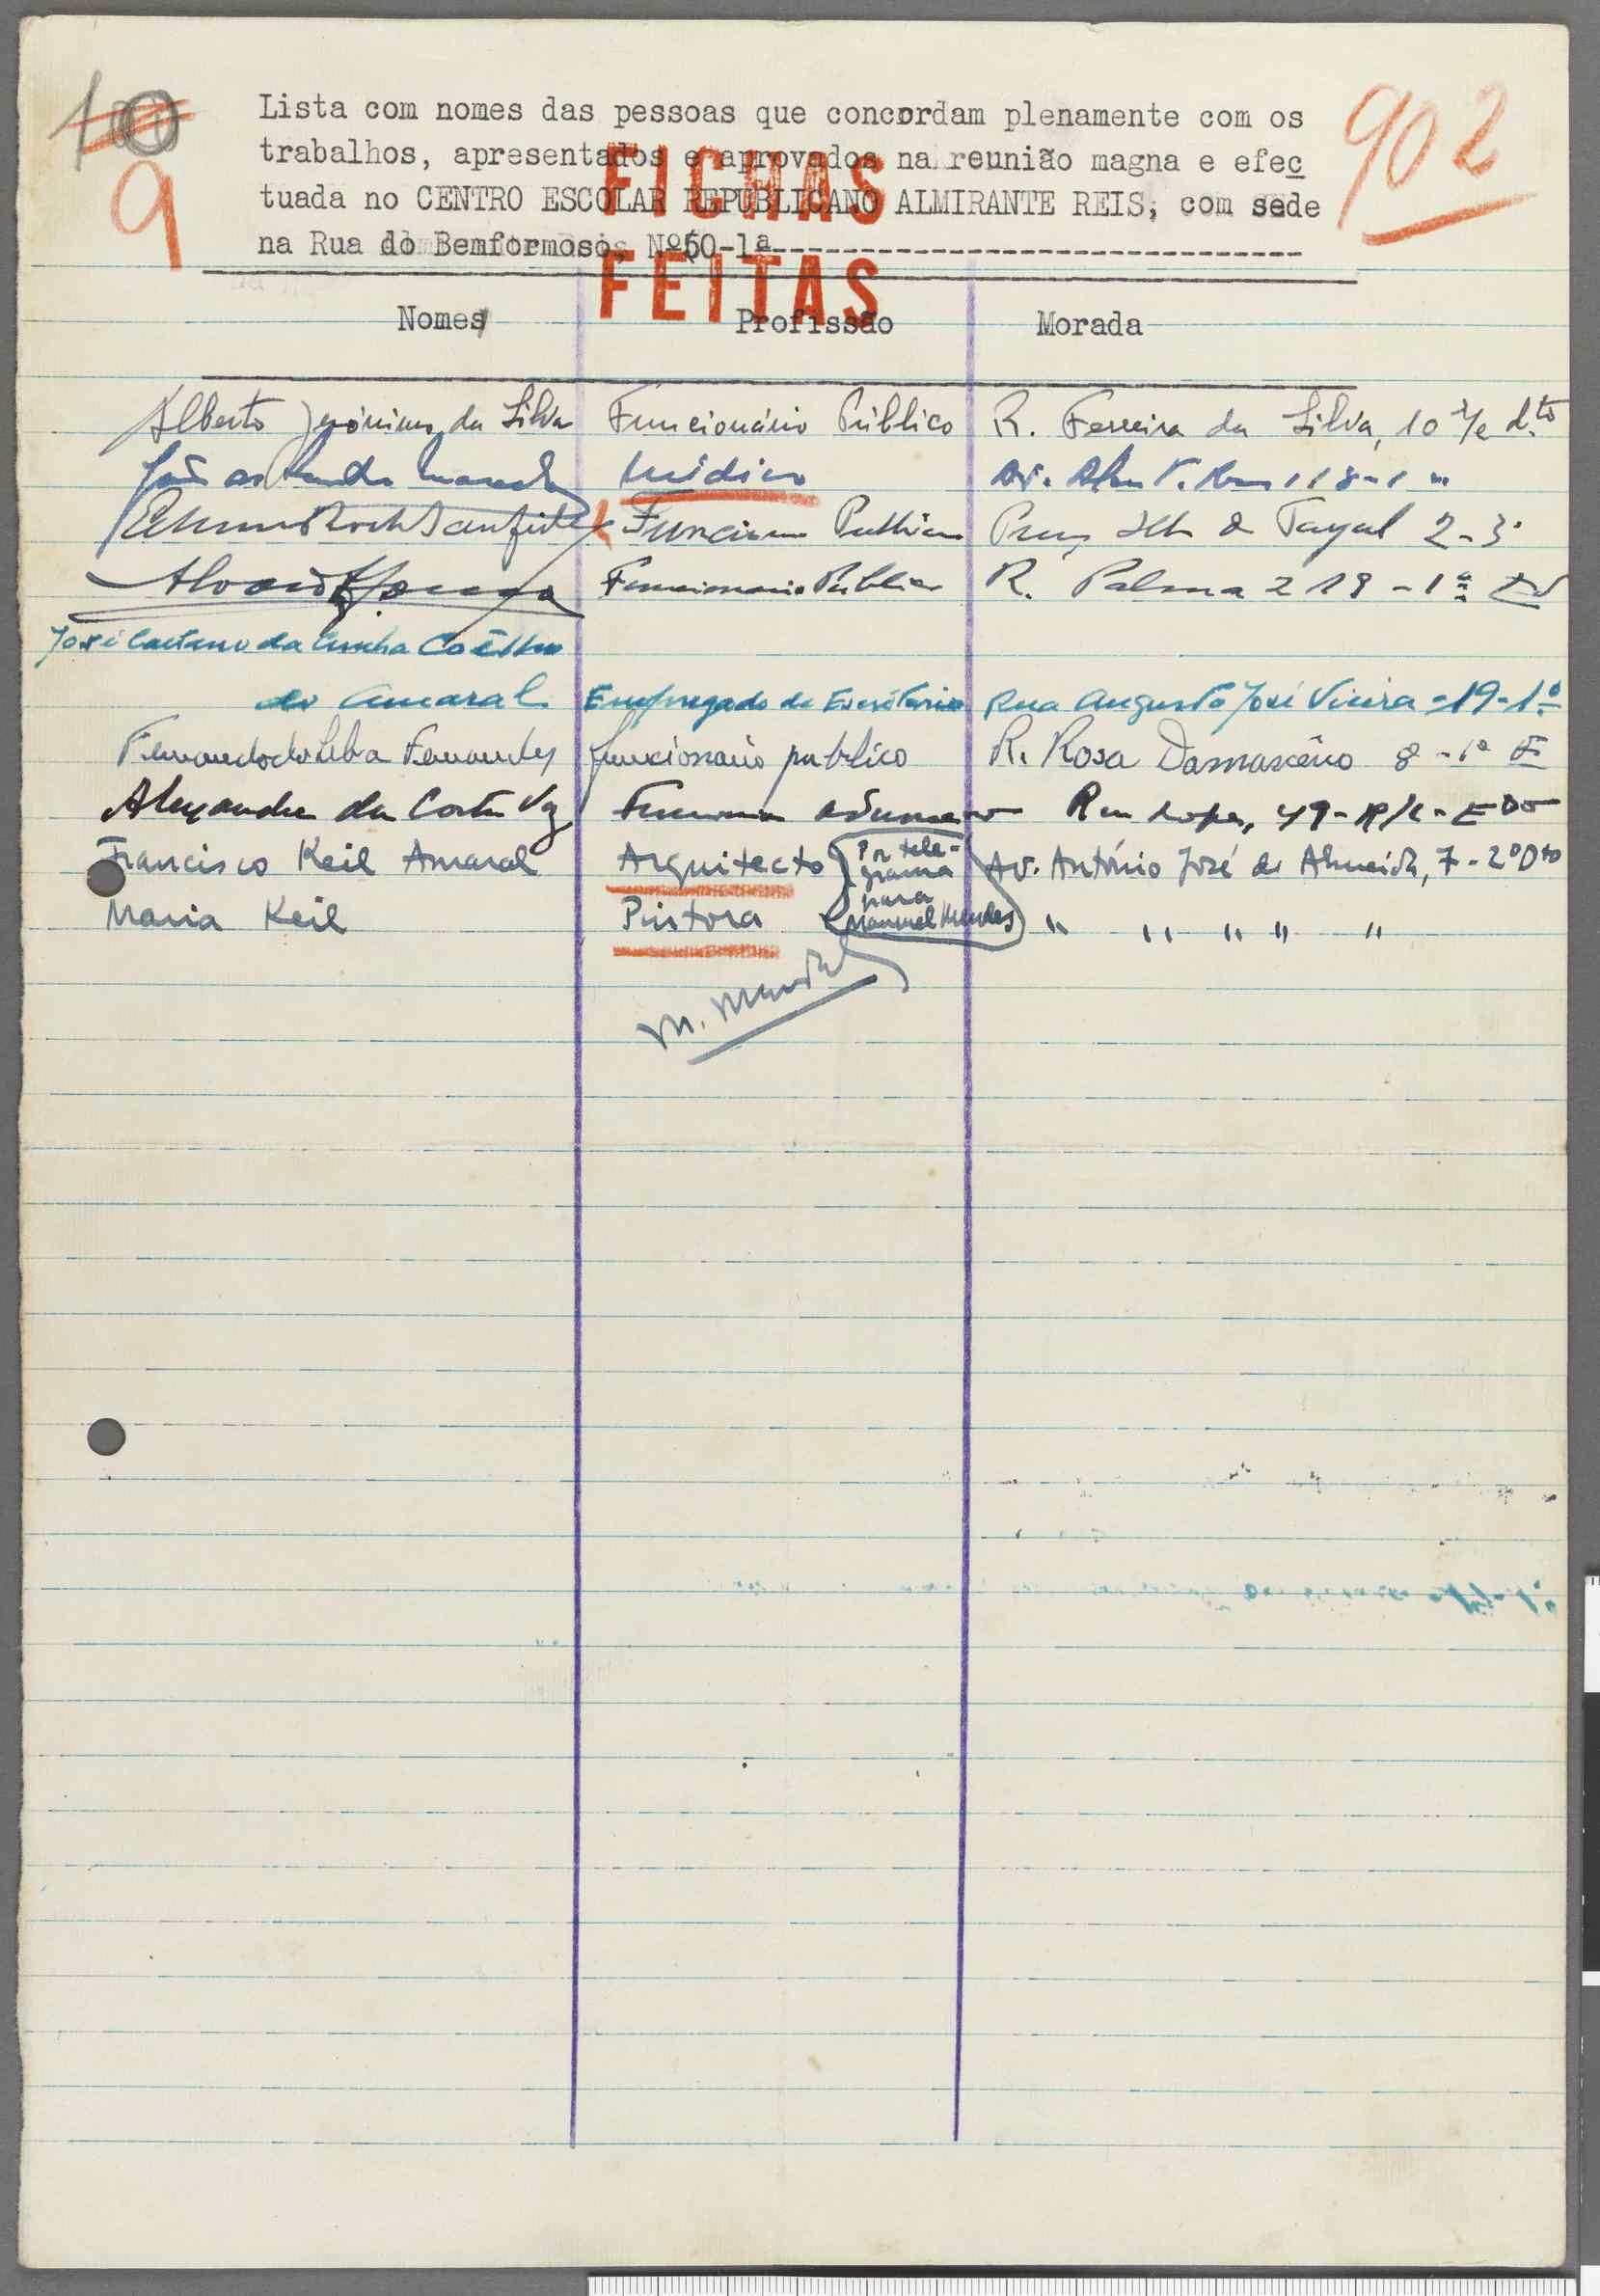 10
9
902
Lista com nomes das pessoas que concordam plenamente com os
trabalhos, apresentados e aprovados na reunião magna e efec
tuada no CENTRO ESCOLAR REPUBLICANO ALMIRANTE REIS, com sede
na Rua do Bemformoso, Nº50-1ª------------------------------
FICHAS
FEITAS
Nomes Profissão Morada
Alberto Jerónimo da Silva Funcionário Público R. Ferreira da Silva, 10 r/c d.to
Médico 118-1
Funcion Publico 2-3º
Funcionario Publico R. Palma 218-1º
José Caetano da Cunha Coelho
do Amaral Empregado de Escritório Rua Augusto José Vieira-19-1º
Fernando da Silva Fernandes funcionário publico R. Rosa Damasceno 8-1º E
Alexandre da Costa Vaz 49-R/c-EDO
Francisco Keil Amaral Arquitecto (Por tele-
grama
para
Manuel Mendes) Av. António José de Almeida, 7-2º Dto
Maria Keil Pintora " " " " "
M. Mendes